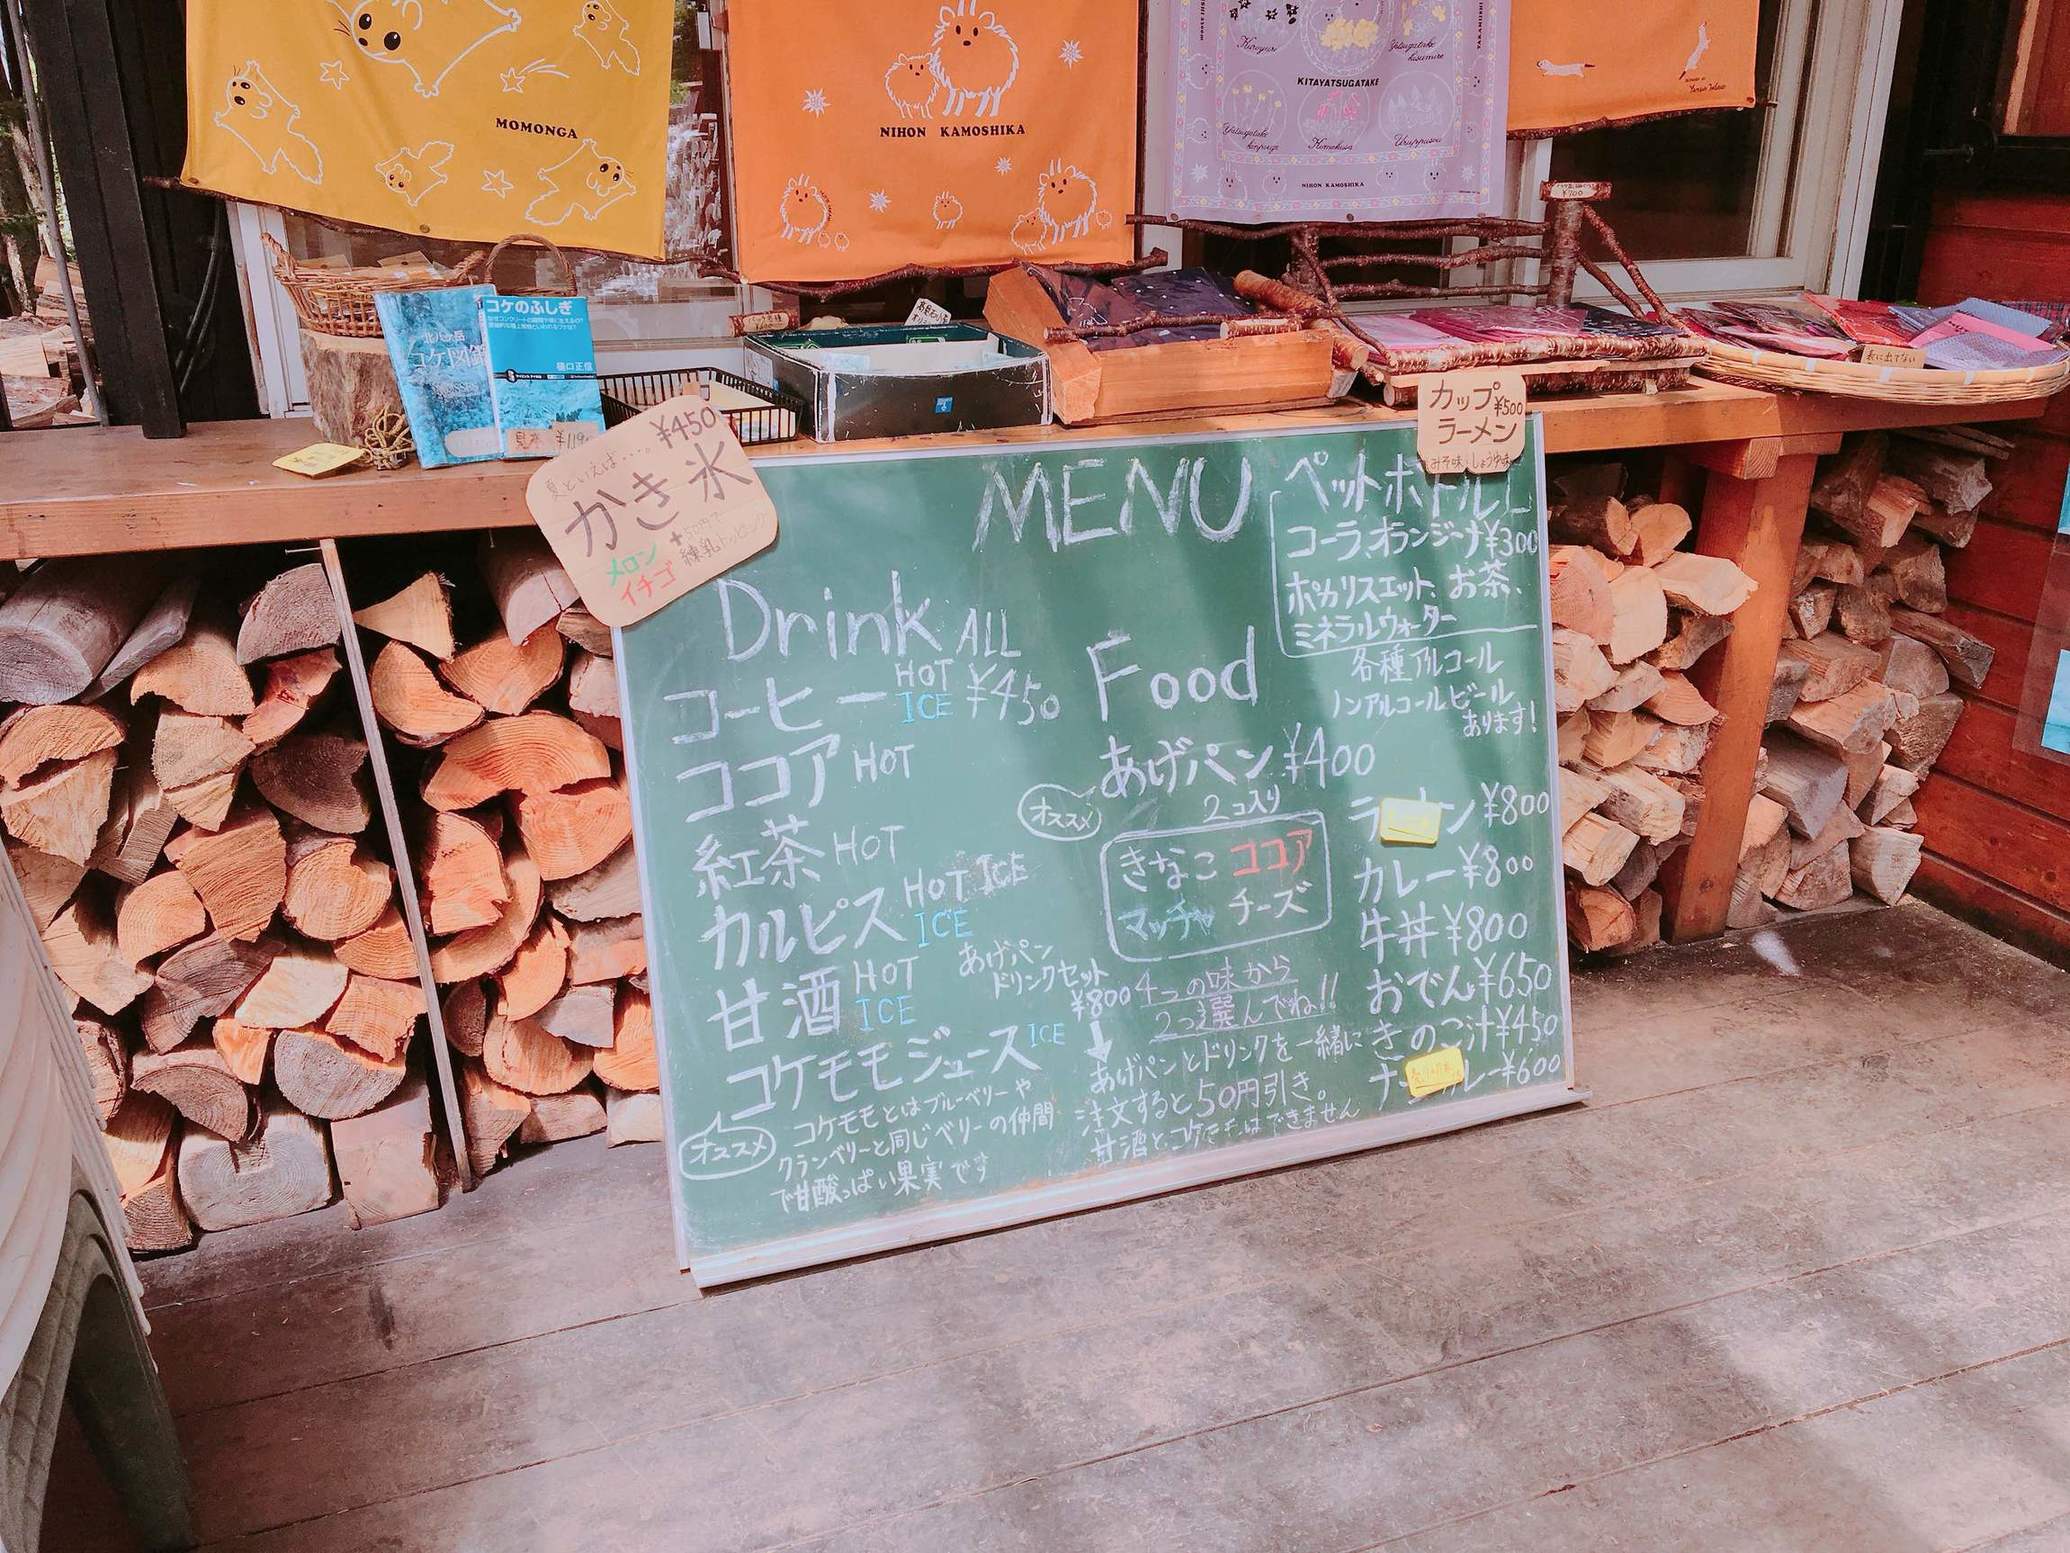 MOMONGA
NIHON KAMOSHIKA
KITAYATSUGATAKE
Kimakusa
Uruppusou
NIHON KAMOSHIKA
¥700
北八ヶ岳
コケ図鑑
コケのふしぎ
樋口正信
見本 ¥119
表に出てない
夏といえば…。¥450
かき氷
メロン
イチゴ
+50円で
練乳トッピング
カップ ¥500
ラーメン
みそ味・しょうゆ味
MENU
ペットボトル
コーラ、オランジーナ ¥300
ポカリスエット、お茶、
ミネラルウォーター
各種アルコール
ノンアルコールビール
あります!
Drink ALL
¥450
コーヒー HOT ICE
ココア HOT
紅茶 HOT
カルピス HOT ICE
ICE
甘酒 HOT ICE
コケモモジュース ICE
オススメ
コケモモとはブルーベリーや
クランベリーと同じベリーの仲間
で甘酸っぱい果実です
Food
あげパン ¥400
2コ入り
オススメ
きなこ ココア
マッチャ チーズ
4つの味から
2つ選んでね!!
あげパン
ドリンクセット
¥800
↓
あげパンとドリンクを一緒に
注文すると50円引き。
甘酒とコケモモはできません
ラ ン ¥800
カレー ¥800
牛丼 ¥800
おでん ¥650
きのこ汁 ¥450
ナ カレー ¥600